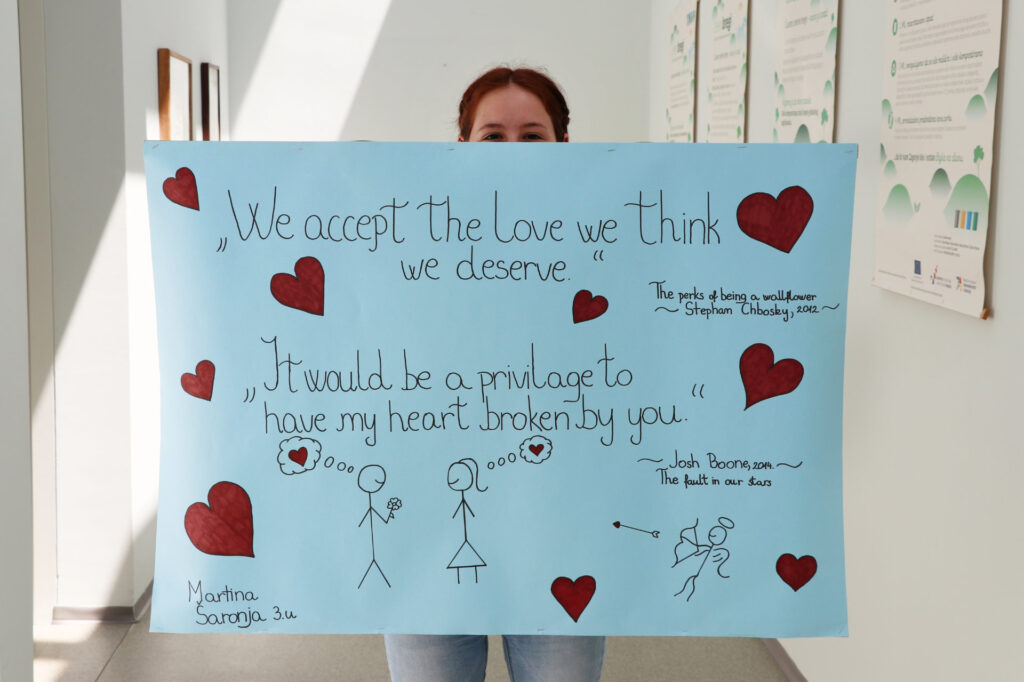 „We accept the love we think
we deserve.“
The perks of being a wallflower
~ Stepham Chbosky, 2012 ~
„It would be a privilage to
have my heart broken by you.“
~ Josh Boone, 2014. ~
The fault in our stars
Martina
Šaronja 3.u